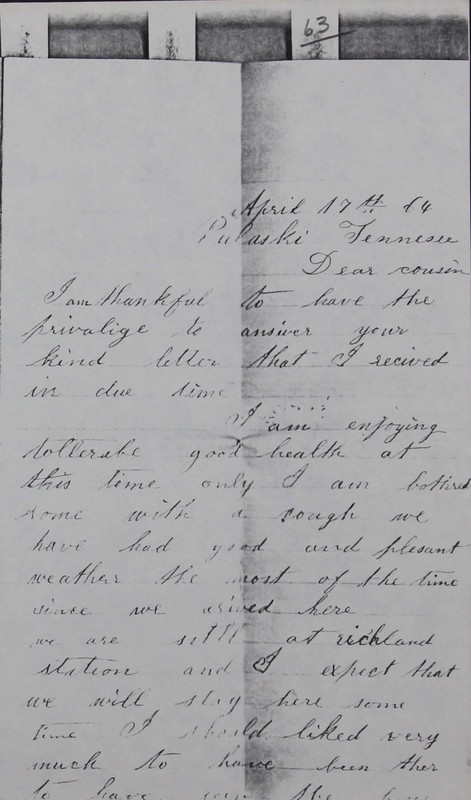 63
April 17th 64
Pulaski Tennesee
Dear cousin
I am thankful to have the
privalige to answer your
kind letter that I recived
in due time
I am enjoying
tollerabe good health at
this time only I am bothered
some with a cough we
have had good and plesant
weather the most of the time
since we arived here
we are still at richland
station and I expect that
we will stay here some
time I should liked very
much to have been ther
to have seen the